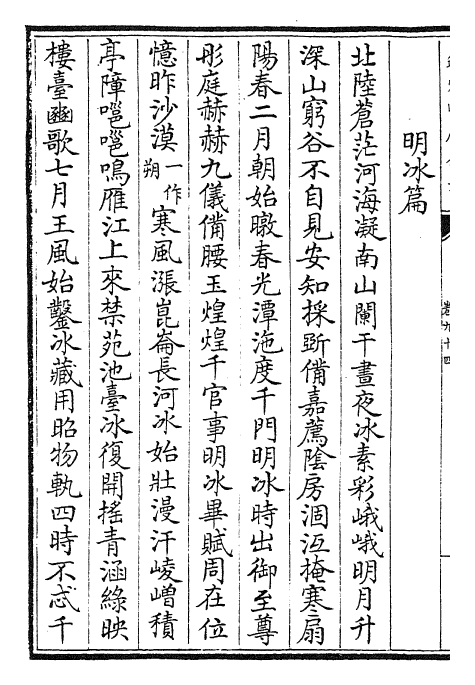 明冰篇
北陸蒼茫河海凝南山闌干晝夜冰素彩峨峨明月升
深山窮谷不自見安知採斲備嘉薦陰房涸沍掩寒扇
陽春二月朝始暾春光潭沲度千門明冰時出御至尊
彤庭赫赫九儀備腰玉煌煌千官事明冰畢賦周在位
憶昨沙漠一作朔寒風漲崑崙長河冰始壯漫汗崚嶒積
亭障嗈嗈鳴雁江上來禁苑池臺冰復開搖青涵綠映
樓臺豳歌七月王風始鑿冰藏用昭物軌四時不忒千